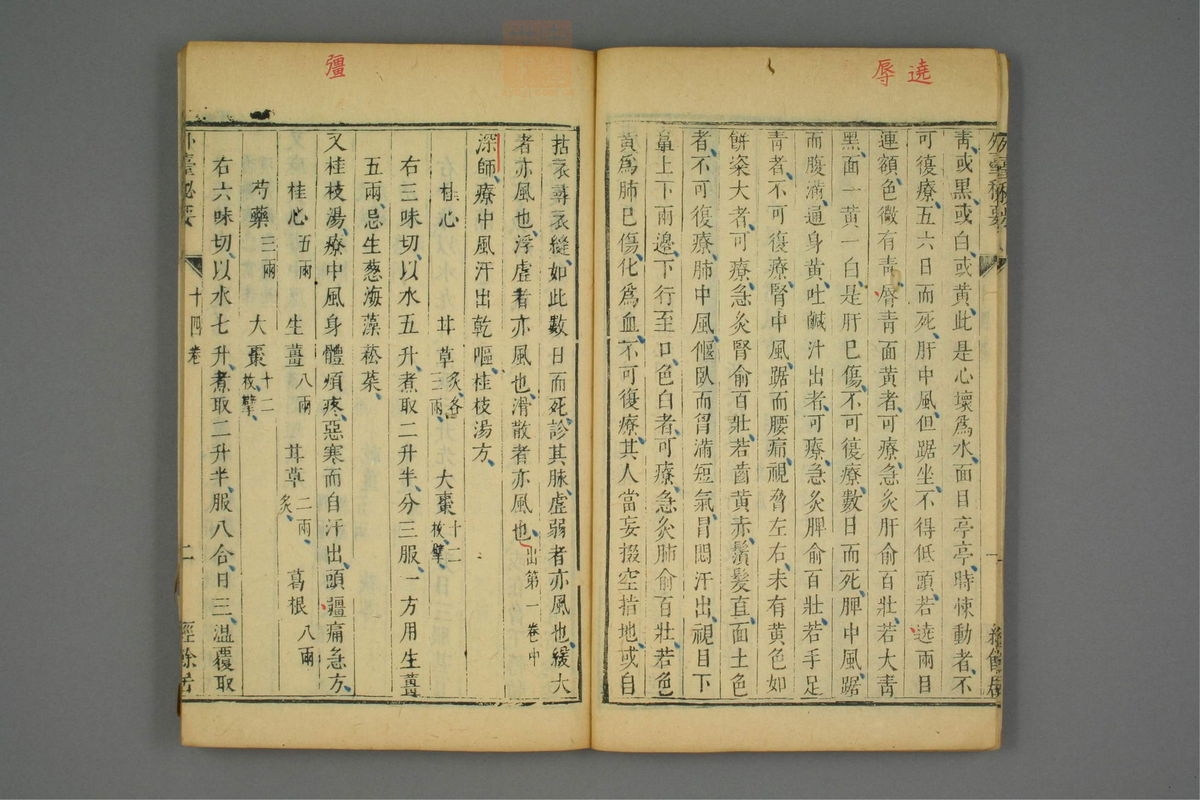 遶
辱
外臺祕要
一
經餘居
青或黑或白或黃此是心壞爲水面目亭亭時悚動者不
可復療五六日而死肝中風但踞坐不得低頭若遶兩目
連額色微有青脣青面黃者可療急灸肝俞百壯若大青
黑面一黃一白是肝已傷不可復療數日而死脾中風踞
而腹滿通身黃吐鹹汁出者可療急灸脾俞百壯若手足
青者不可復療腎中風踞而腰痛視脅左右未有黃色如
餅粢大者可療急灸腎俞百壯若齒黃赤鬢髮直面土色
者不可復療肺中風偃臥而胷滿短氣冒悶汗出視目下
鼻上下兩邊下行至口色白者可療急灸肺俞百壯若色
黃爲肺已傷化爲血不可復療其人當妄掇空指地或自
彊
拈衣尋衣縫如此數日而死診其脉虛弱者亦風也緩大
者亦風也浮虛者亦風也滑散者亦風也出第一卷中
深師療中風汗出乾嘔桂枝湯方
桂心 甘草炙各三兩 大棗十二枚擘
右三味切以水五升煮取二升半分三服一方用生薑
五兩忌生葱海藻菘菜
又桂枝湯療中風身體煩疼惡寒而自汗出頭疆痛急方
桂心五兩 生薑八兩 甘草二兩炙 葛根八兩
芍藥三兩 大棗十二枚擘
右六味切以水七升煮取二升半服八合日三温覆取
外臺祕要
十四卷
二
經餘居